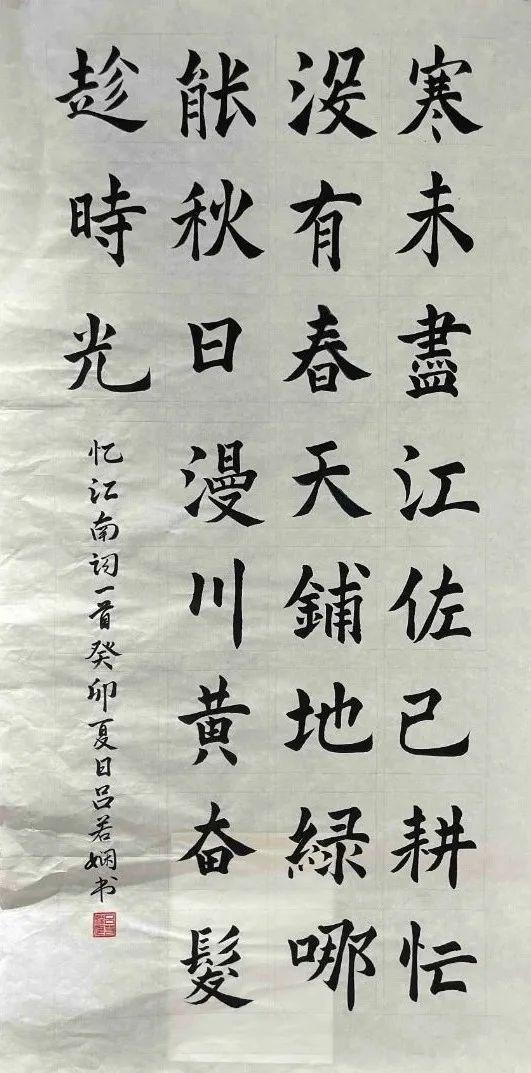 寒未盡江佐已耕忙
没有春天鋪地緑哪
能秋日漫川黄奋髮
趁時光
忆江南词一首癸卯夏日吕若娴书